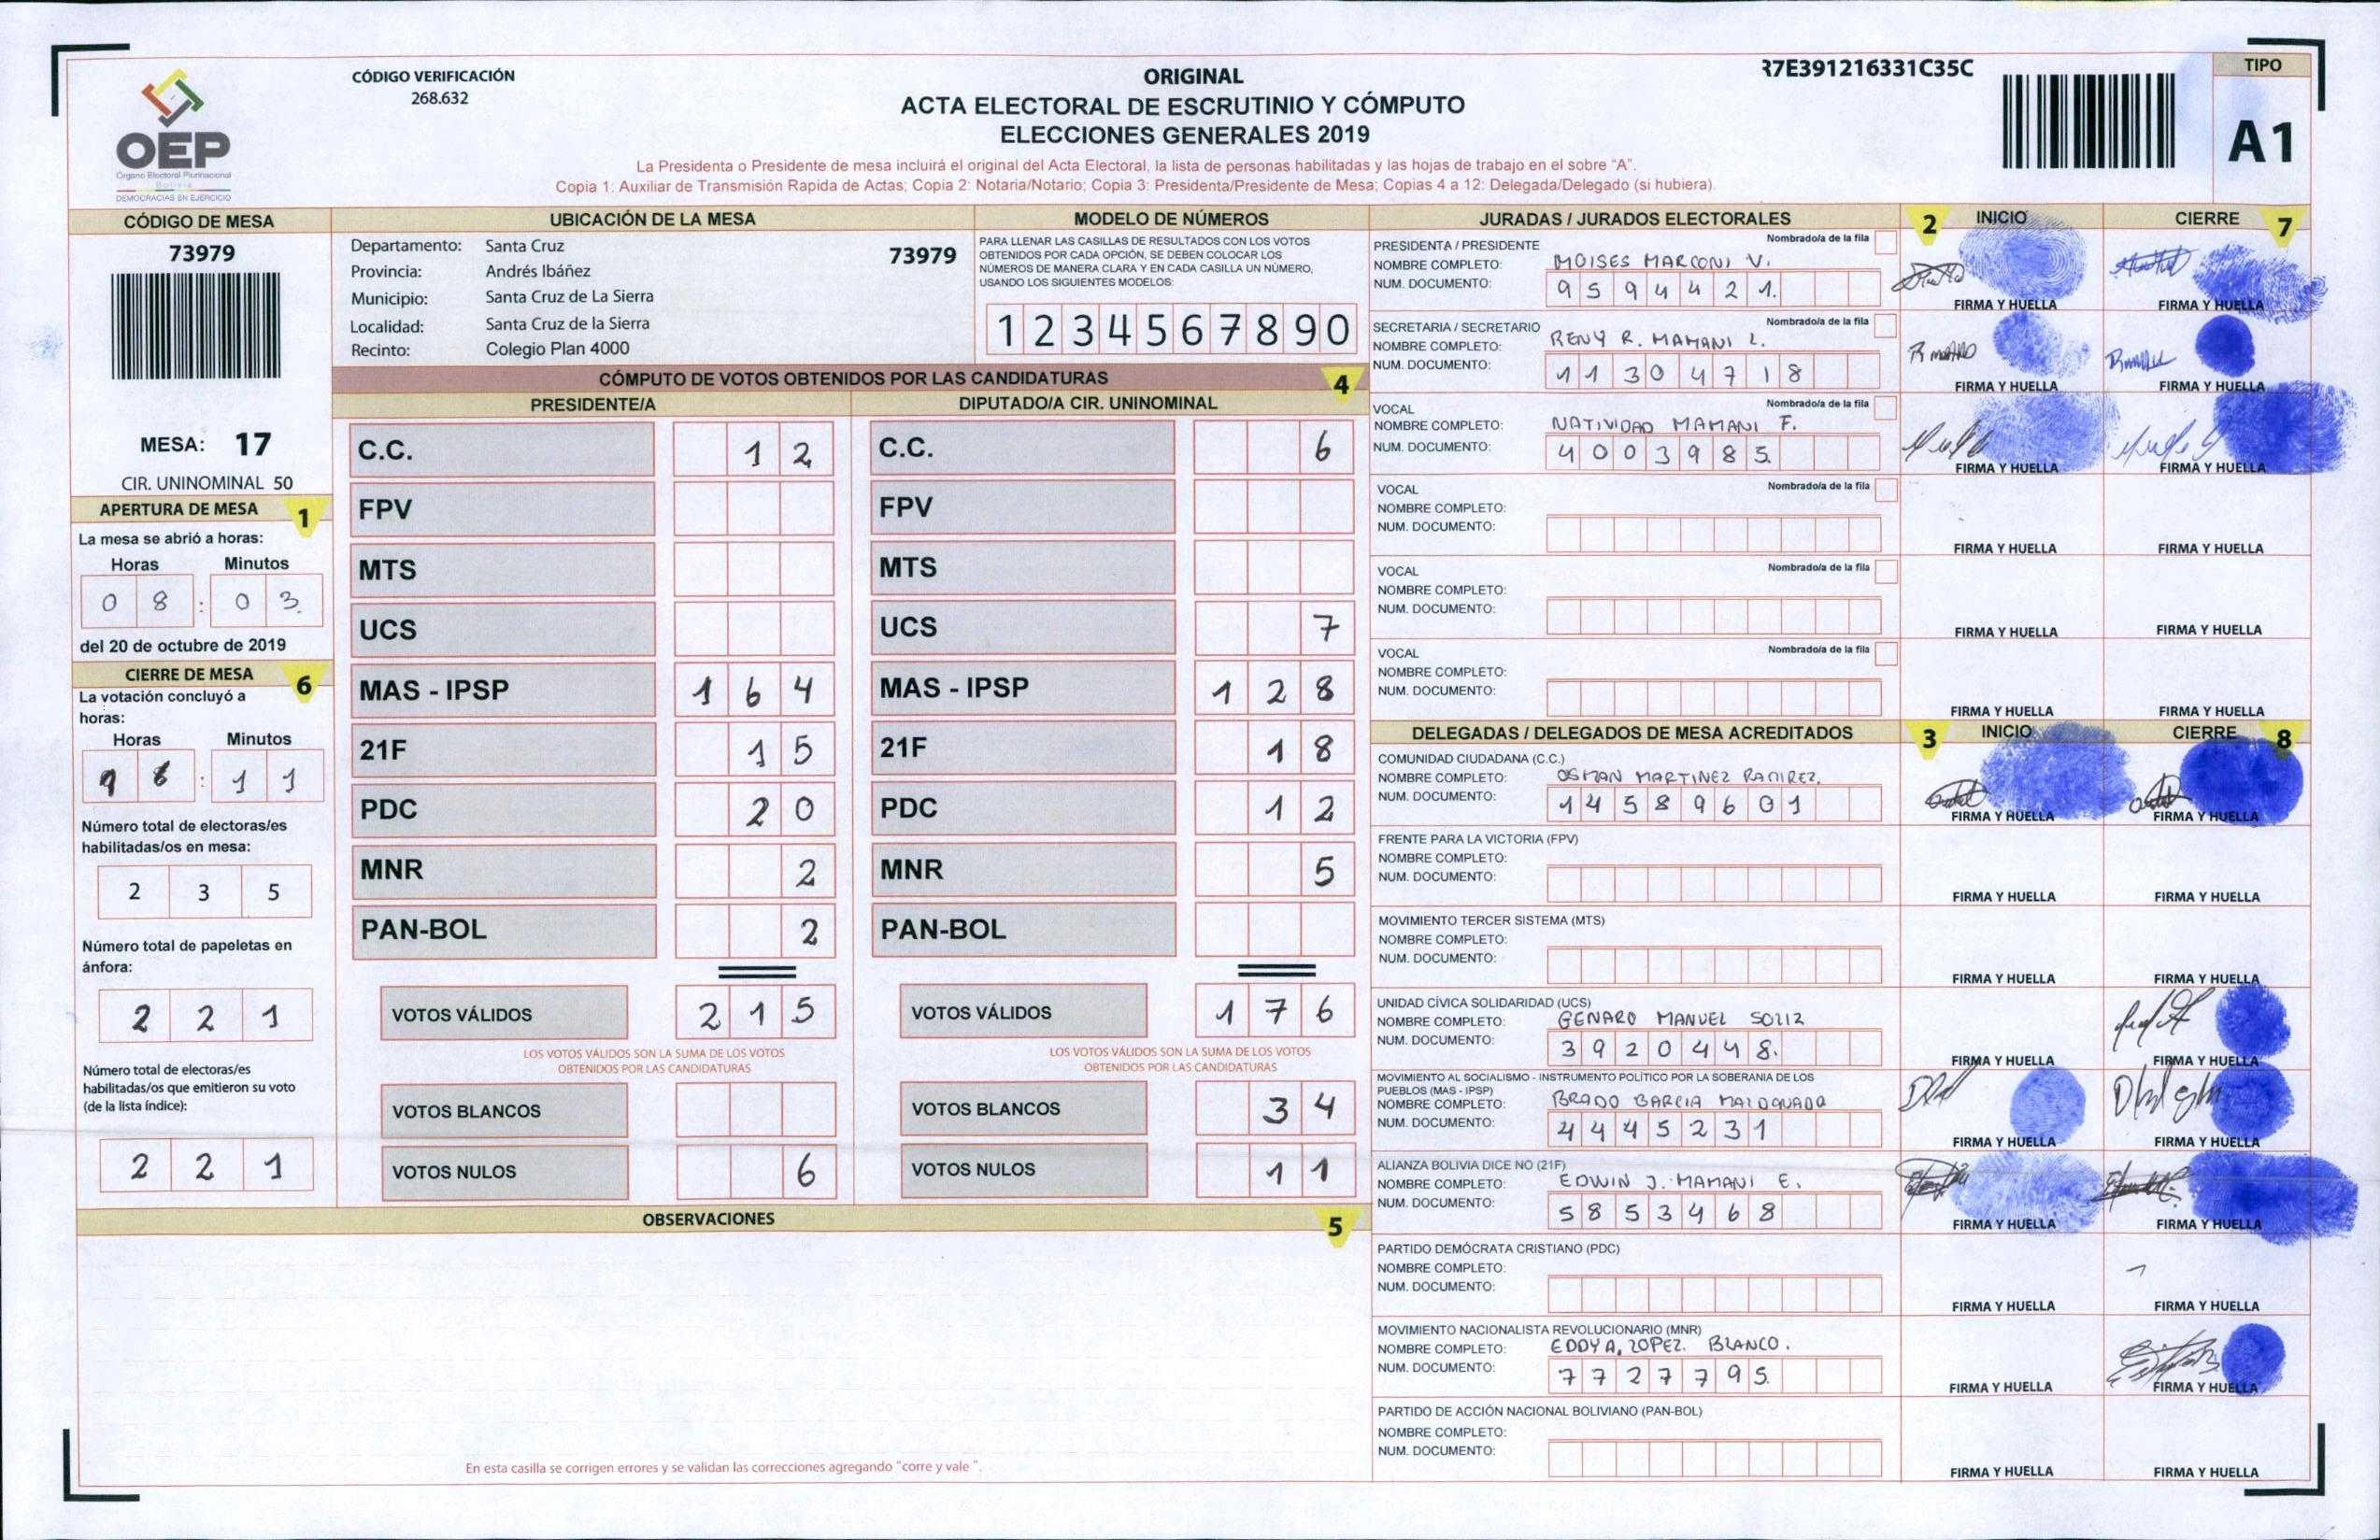 CÓDIGO VERIFICACIÓN
268.632
ORIGINAL
ACTA ELECTORAL DE ESCRUTINIO Y CÓMPUTO
ELECCIONES GENERALES 2019
La Presidenta o Presidente de mesa incluirá el original del Acta Electoral, la lista de personas habilitadas y las hojas de trabajo en el sobre "A".
Copia 1: Auxiliar de Transmisión Rapida de Actas; Copia 2: Notaria/Notario; Copia 3: Presidenta/Presidente de Mesa; Copias 4 a 12: Delegada/Delegado (si hubiera).
R7E391216331C35C
TIPO
A1
OEP
Órgano Electoral Plurinacional
Bolivia
DEMOCRACIAS EN EJERCICIO
CÓDIGO DE MESA
73979
MESA: 17
CIR. UNINOMINAL 50
APERTURA DE MESA 1
La mesa se abrió a horas:
Horas Minutos
0 8 : 0 3
del 20 de octubre de 2019
CIERRE DE MESA 6
La votación concluyó a
horas:
Horas Minutos
: 1 1
Número total de electoras/es
habilitadas/os en mesa:
2 3 5
Número total de papeletas en
ánfora:
2 2 1
Número total de electoras/es
habilitadas/os que emitieron su voto
(de la lista índice):
2 2 1
UBICACIÓN DE LA MESA
Departamento: Santa Cruz 73979
Provincia: Andrés Ibáñez
Municipio: Santa Cruz de La Sierra
Localidad: Santa Cruz de la Sierra
Recinto: Colegio Plan 4000
MODELO DE NÚMEROS
PARA LLENAR LAS CASILLAS DE RESULTADOS CON LOS VOTOS
OBTENIDOS POR CADA OPCIÓN, SE DEBEN COLOCAR LOS
NÚMEROS DE MANERA CLARA Y EN CADA CASILLA UN NÚMERO,
USANDO LOS SIGUIENTES MODELOS:
1 2 3 4 5 6 7 8 9 0
CÓMPUTO DE VOTOS OBTENIDOS POR LAS CANDIDATURAS 4
PRESIDENTE/A DIPUTADO/A CIR. UNINOMINAL
C.C. 1 2 C.C. 6
FPV FPV
MTS MTS
UCS UCS 7
MAS - IPSP 1 6 4 MAS - IPSP 1 2 8
21F 1 5 21F 1 8
PDC 2 0 PDC 1 2
MNR 2 MNR 5
PAN-BOL 2 PAN-BOL
VOTOS VÁLIDOS 2 1 5 VOTOS VÁLIDOS 1 7 6
LOS VOTOS VÁLIDOS SON LA SUMA DE LOS VOTOS LOS VOTOS VÁLIDOS SON LA SUMA DE LOS VOTOS
OBTENIDOS POR LAS CANDIDATURAS OBTENIDOS POR LAS CANDIDATURAS
VOTOS BLANCOS VOTOS BLANCOS 3 4
VOTOS NULOS 6 VOTOS NULOS 1 1
OBSERVACIONES 5
En esta casilla se corrigen errores y se validan las correcciones agregando "corre y vale ".
JURADAS / JURADOS ELECTORALES 2 INICIO CIERRE 7
PRESIDENTA / PRESIDENTE Nombrado/a de la fila
NOMBRE COMPLETO: MOISES MARCONI V.
NUM. DOCUMENTO: 9 5 9 4 4 2 1.
FIRMA Y HUELLA FIRMA Y HUELLA
SECRETARIA / SECRETARIO Nombrado/a de la fila
NOMBRE COMPLETO: RENY R. MAMANI L.
NUM. DOCUMENTO: 1 1 3 0 4 7 1 8
FIRMA Y HUELLA FIRMA Y HUELLA
VOCAL Nombrado/a de la fila
NOMBRE COMPLETO: NATIVIDAD MAMANI F.
NUM. DOCUMENTO: 4 0 0 3 9 8 5.
FIRMA Y HUELLA FIRMA Y HUELLA
VOCAL Nombrado/a de la fila
NOMBRE COMPLETO:
NUM. DOCUMENTO:
FIRMA Y HUELLA FIRMA Y HUELLA
VOCAL Nombrado/a de la fila
NOMBRE COMPLETO:
NUM. DOCUMENTO:
FIRMA Y HUELLA FIRMA Y HUELLA
VOCAL Nombrado/a de la fila
NOMBRE COMPLETO:
NUM. DOCUMENTO:
FIRMA Y HUELLA FIRMA Y HUELLA
DELEGADAS / DELEGADOS DE MESA ACREDITADOS 3 INICIO CIERRE 8
COMUNIDAD CIUDADANA (C.C.)
NOMBRE COMPLETO: OSMAN MARTINEZ RAMIREZ.
NUM. DOCUMENTO: 1 4 5 8 9 6 0 1
FIRMA Y HUELLA FIRMA Y HUELLA
FRENTE PARA LA VICTORIA (FPV)
NOMBRE COMPLETO:
NUM. DOCUMENTO:
FIRMA Y HUELLA FIRMA Y HUELLA
MOVIMIENTO TERCER SISTEMA (MTS)
NOMBRE COMPLETO:
NUM. DOCUMENTO:
FIRMA Y HUELLA FIRMA Y HUELLA
UNIDAD CÍVICA SOLIDARIDAD (UCS)
NOMBRE COMPLETO: GENARO MANUEL
NUM. DOCUMENTO: 3 9 2 0 4 4 8.
FIRMA Y HUELLA FIRMA Y HUELLA
MOVIMIENTO AL SOCIALISMO - INSTRUMENTO POLÍTICO POR LA SOBERANIA DE LOS
PUEBLOS (MAS - IPSP)
NOMBRE COMPLETO: BRADO GARCIA MALDONADO
NUM. DOCUMENTO: 4 4 4 5 2 3 1
FIRMA Y HUELLA FIRMA Y HUELLA
ALIANZA BOLIVIA DICE NO (21F)
NOMBRE COMPLETO: EDWIN J. MAMANI E.
NUM. DOCUMENTO: 5 8 5 3 4 6 8
FIRMA Y HUELLA FIRMA Y HUELLA
PARTIDO DEMÓCRATA CRISTIANO (PDC)
NOMBRE COMPLETO:
NUM. DOCUMENTO:
FIRMA Y HUELLA FIRMA Y HUELLA
MOVIMIENTO NACIONALISTA REVOLUCIONARIO (MNR)
NOMBRE COMPLETO: EDDY A. LOPEZ. BLANCO.
NUM. DOCUMENTO: 7 7 2 7 7 9 5.
FIRMA Y HUELLA FIRMA Y HUELLA
PARTIDO DE ACCIÓN NACIONAL BOLIVIANO (PAN-BOL)
NOMBRE COMPLETO:
NUM. DOCUMENTO:
FIRMA Y HUELLA FIRMA Y HUELLA